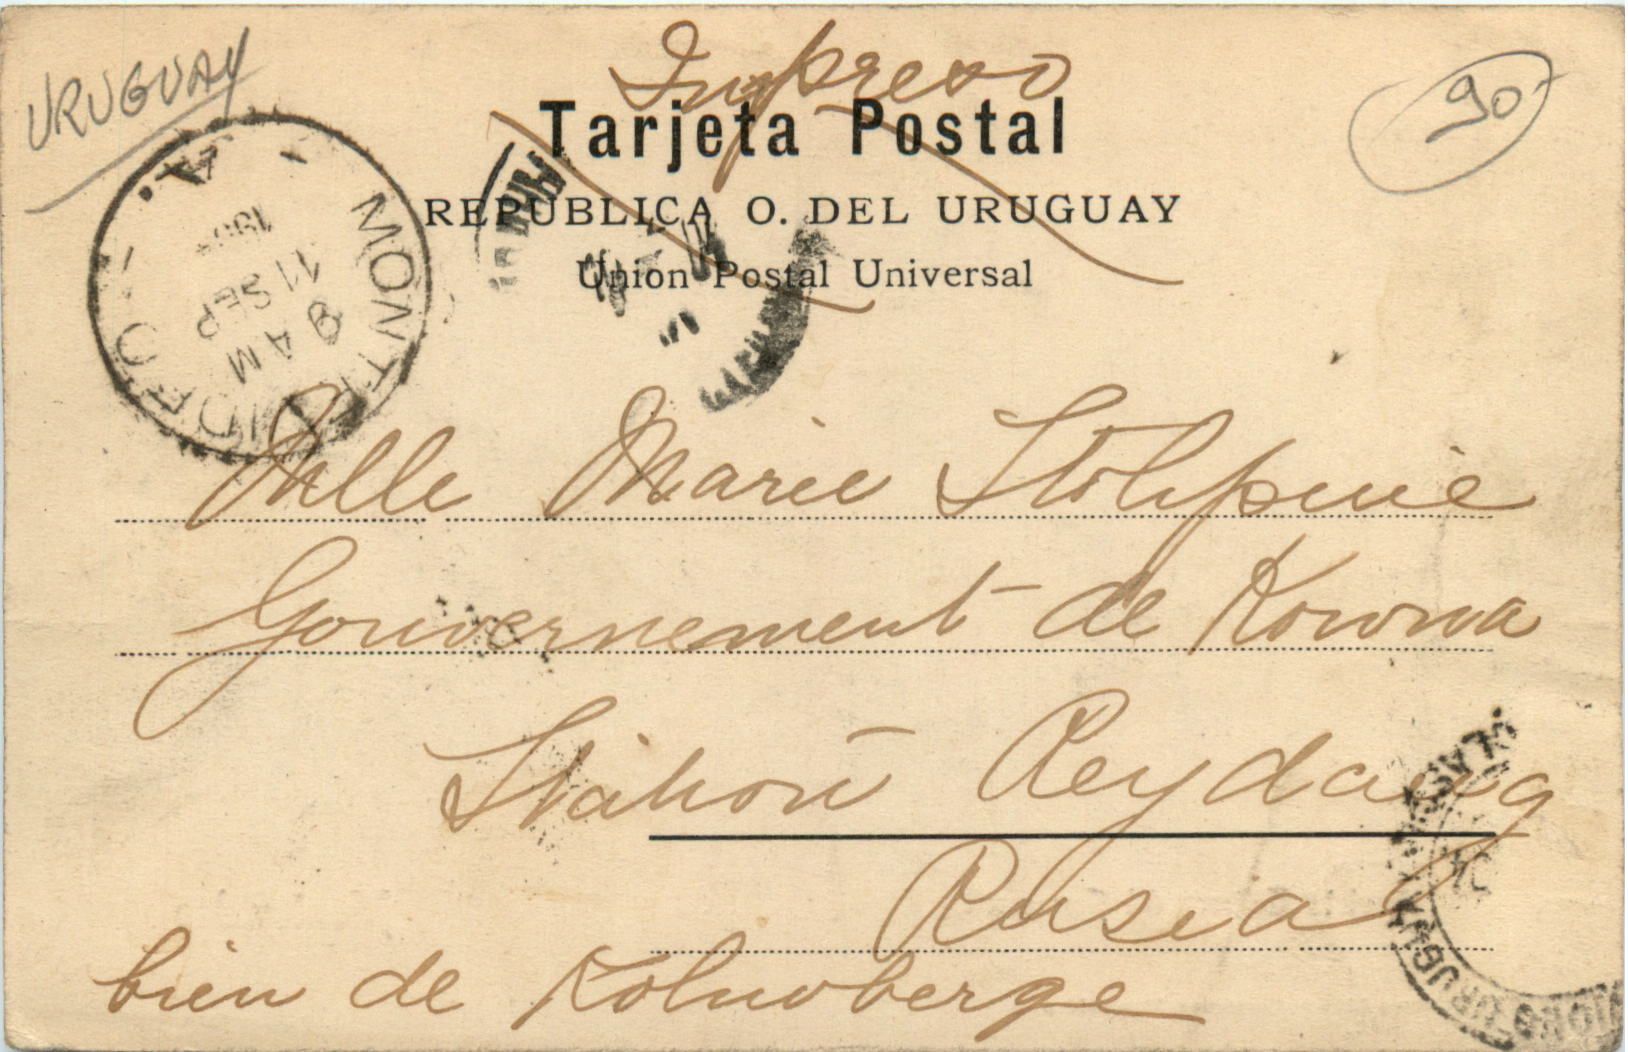 URUGUAY
Impreso
90
Tarjeta Postal
REPUBLICA O. DEL URUGUAY
Union Postal Universal
MONTEVIDEO
A.
9 AM
11 SEP
Mlle Marie Stolipine
Gouvernement de Kowna
Station Keydang
Rusia
bien de Kolnoberge
URUGUAY